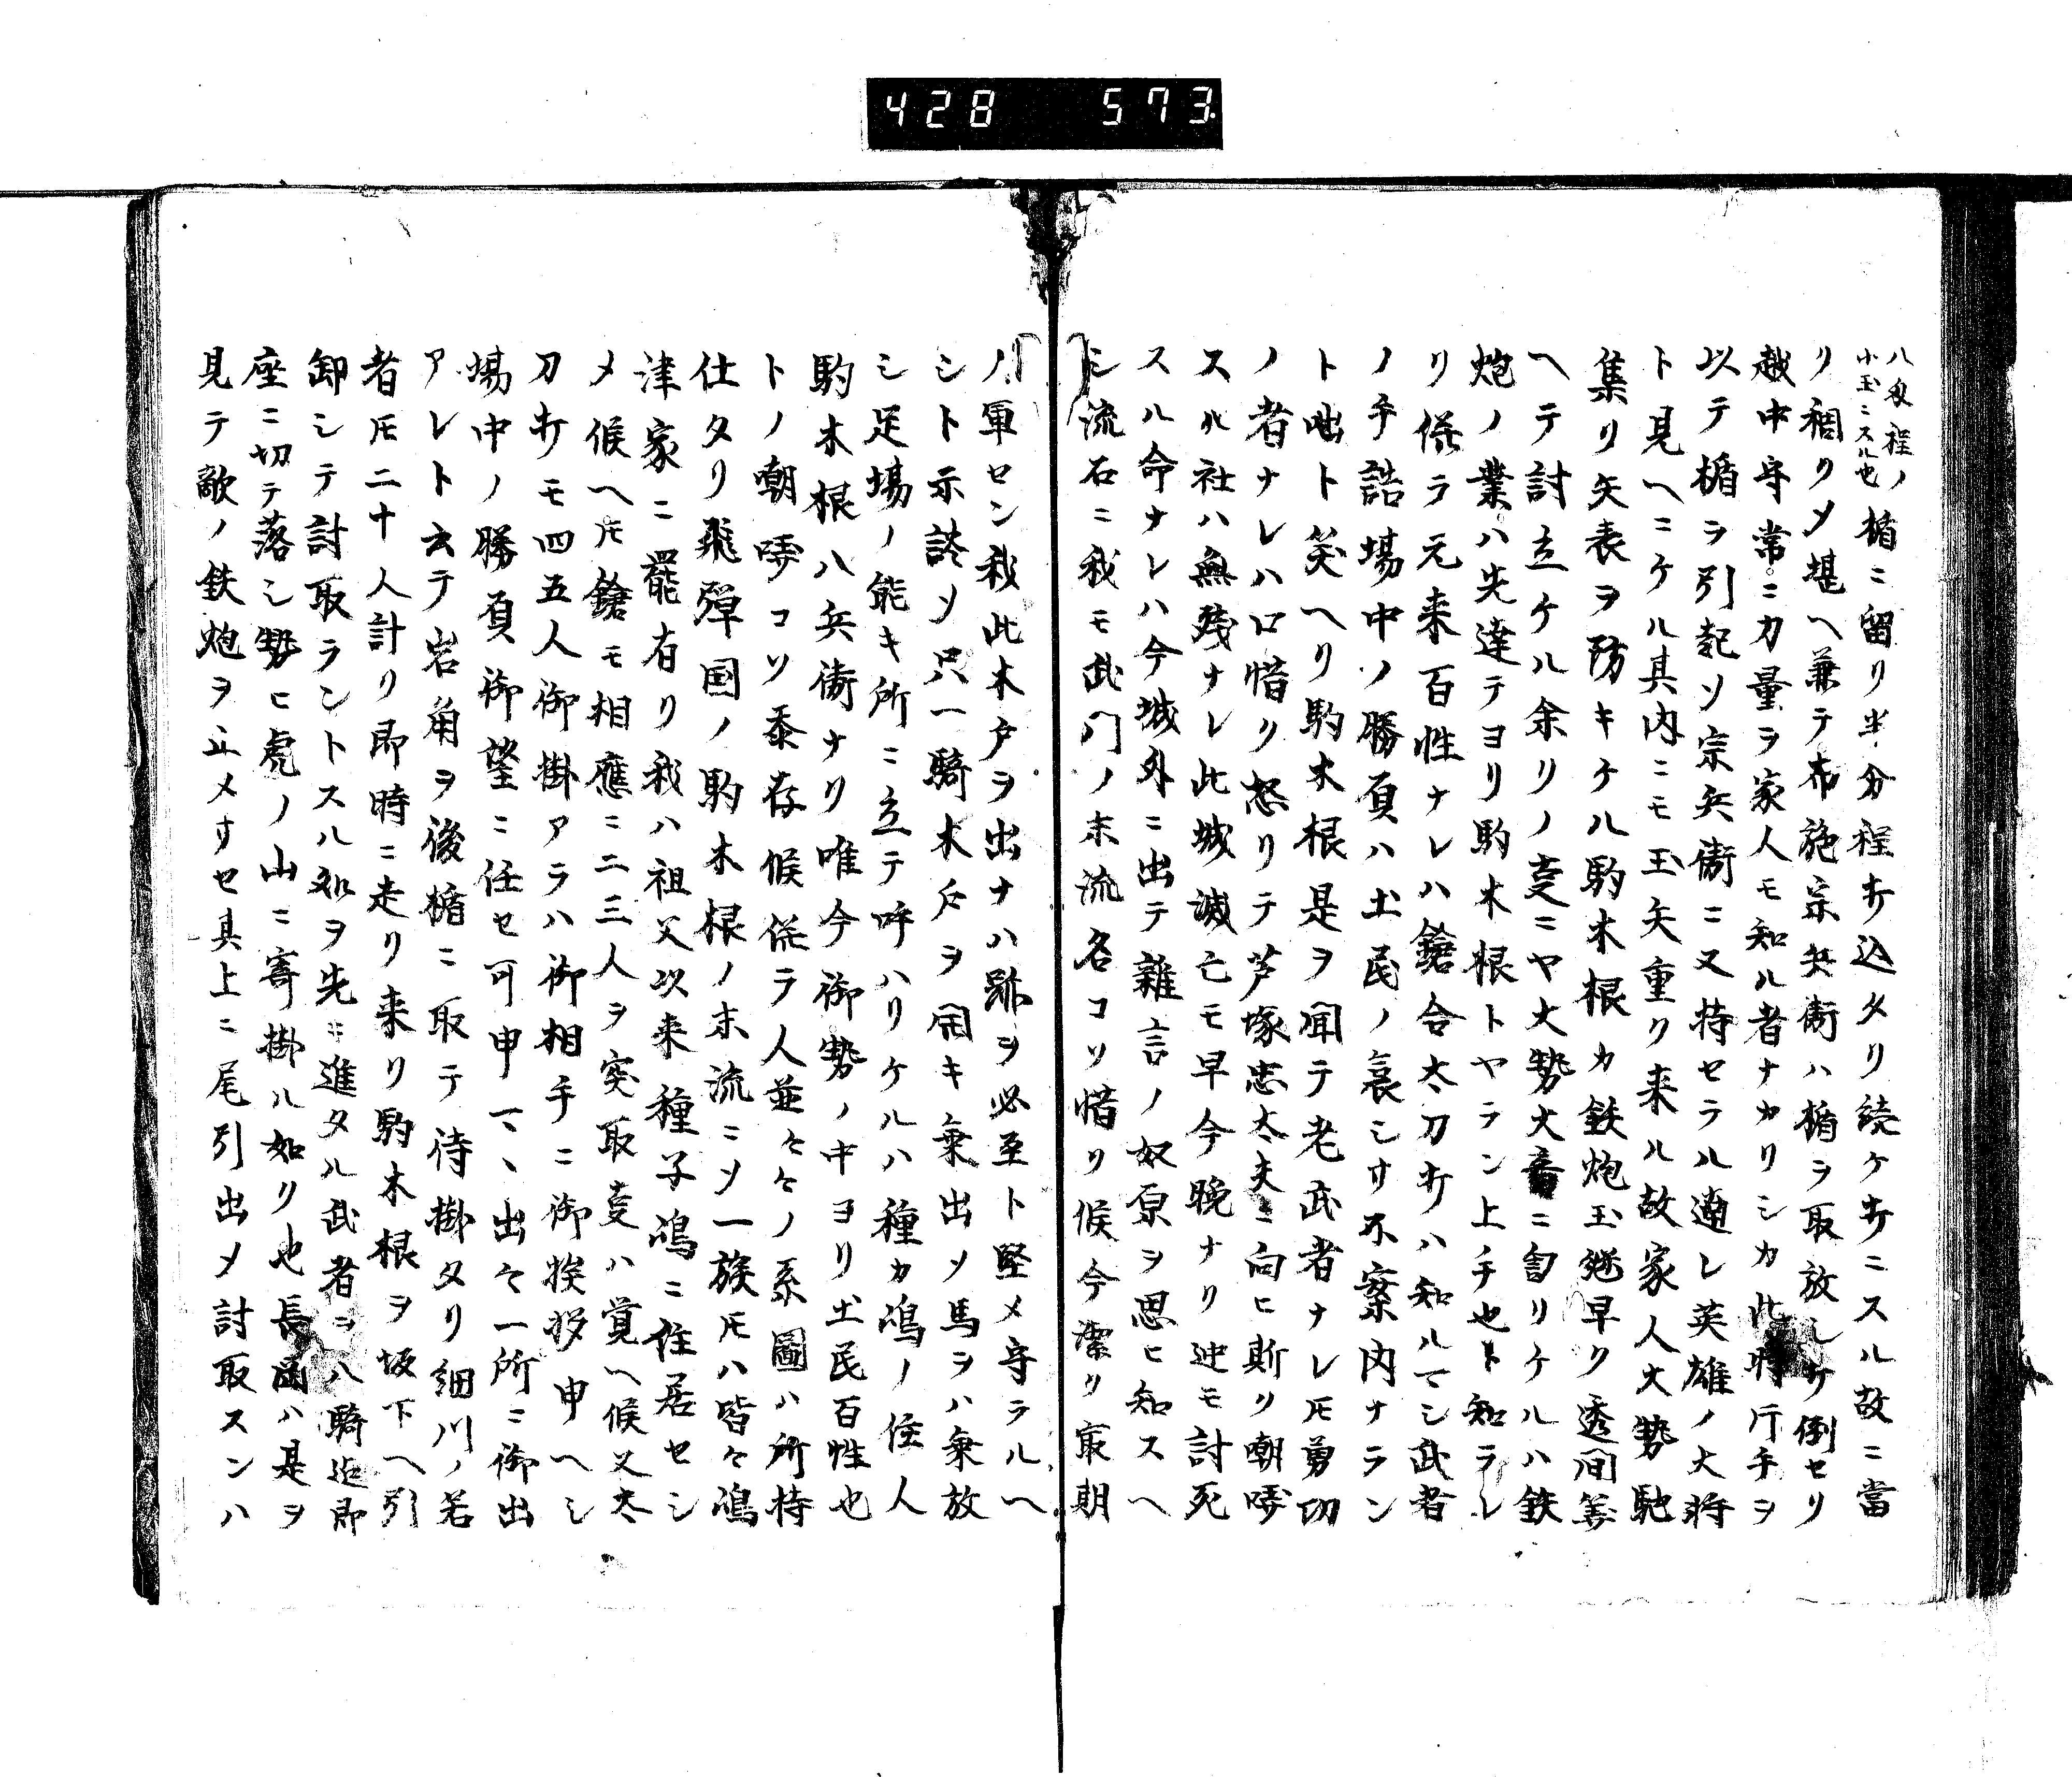 428 573
八匁程ノ
小玉ニスル也
楯ニ留リ半分程打込タリ続ケ打ニスル故ニ當
リ稠クメ堪ヘ兼テ布施宗兵衛ハ楯ヲ取放シサ倒セリ
越中守常ニ力量ヲ家人モ知ル者ナカリシカ此時片手ヲ
以テ楯ヲ引起ソ宗兵衛ニ又持セラル遖レ英雄ノ大将
ト見ヘニケル其内ニモ玉矢重ク来ル故家人大勢馳
集リ矢表ヲ防キケル駒木根カ鉄炮玉継早ク透間等
ヘテ討立ケル余リノ叓ニヤ大勢大音ニ訇リケルハ鉄
炮ノ業ハ先達テヨリ駒木根トヤラン上手也ト知ラレ
リ併ラ元来百性ナレハ鎗合太刀打ハ知ルマシ武者
ノ手詰場中ノ勝負ハ土民ノ哀シサ不案内ナラン
ト咄ト笑ヘリ駒木根是ヲ聞テ老武者ナレ𪜈勇功
ノ者ナレハ口惜ク怒リテ芦塚忠太夫ニ向ヒ斯ク嘲哢
スル社ハ無残ナレ此城滅亡モ早今晩ナリ迚モ討死
スル命ナレハ今城外ニ出テ雑言ノ奴原ヲ思ヒ知スヘ
シ流石ニ我モ武門ノ末流名コソ惜ク候今潔ク最期
ノ軍セン我此木戸ヲ出ナハ跡ヲ必至ト堅メ守ラルヘ
シト示談ソ只一騎木戸ヲ開キ乗出メソ馬ヲハ乗放
シ足場ノ能キ所ニ立テ呼ハリケルハ種カ嶋ノ住人
駒木根八兵衛ナリ唯今御勢ノ中ヨリ土民百性也
トノ嘲哢コソ忝存候併ラ人並々々ノ系圖ハ所持
仕タリ飛騨国ノ駒木根ノ末流ニソ一族𪜈ハ皆々嶋
津家ニ罷有リ我ハ祖父以来種子嶋ニ住居セシ
メ候ヘ𪜈鎗モ相應ニ二三人ヲ突取叓ハ覚ヘ候又太
刀打モ四五人御掛アラハ御相手ニ御挨拶申ヘシ
場中ノ勝負御望ニ任セ可申マヽ出々一所ニ御出
アレト云テ岩角ヲ後楯ニ取テ待掛タリ細川ノ若
者𪜈二十人計リ即時ニ走リ来リ駒木根ヲ坂下ヘ引
卸シテ討取ラントスル処ヲ先ニ進タル武者ヲハ騎迄即
座ニ切テ落シ勢ヒ虎ノ山ニ寄掛ル如リ也長岡ハ是ヲ
見テ敵ノ鉄炮ヲ止メサセ其上ニ尾引出メ討取スンハ